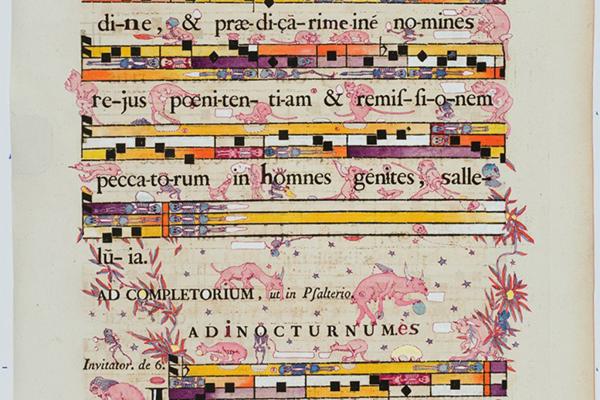 di-ne, & præ-di-çā-ri me iné no-mines
re-jus pœni-ten-ti-am & remiſ-ſi-o-nem
pecca-to-rum in homnes génites, salle-
lū-ia.
AD COMPLETORIUM, ut in Pſalterio,
ADiNOCTURNUMès
Invitator. de 6.